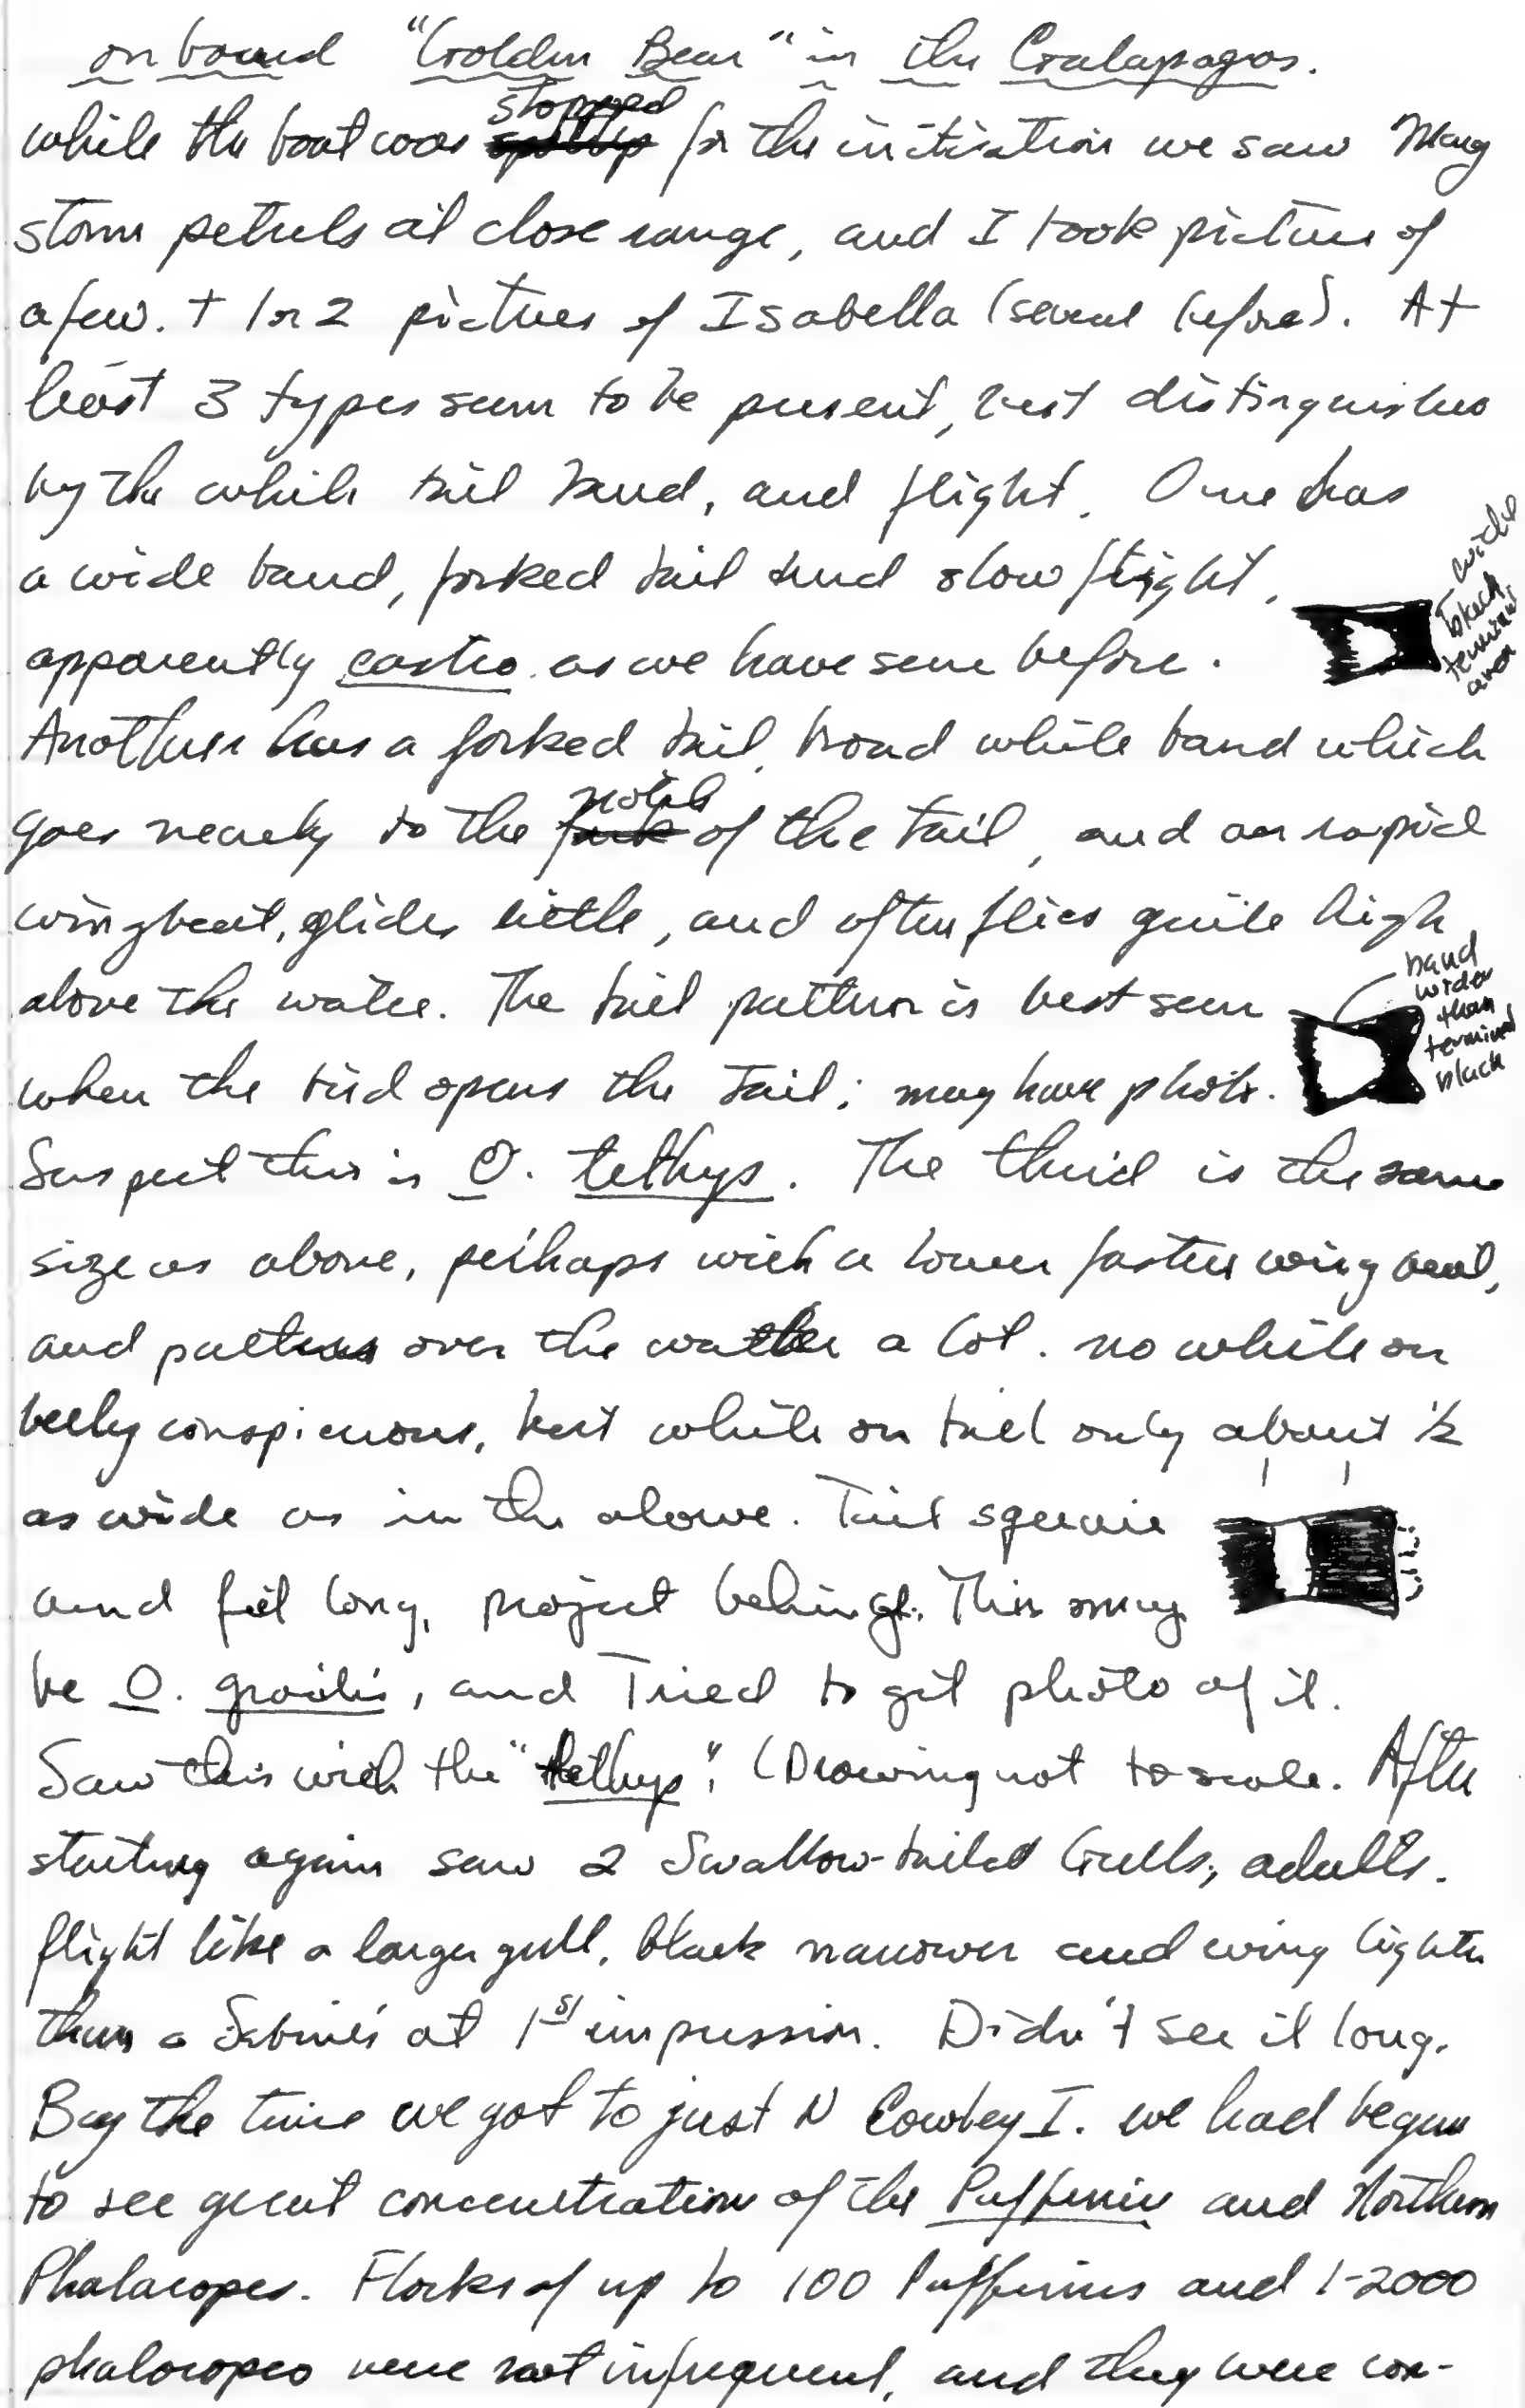 on board "Golden Bear" in the Galapagos.
stopped
while the boat was for the initiation we saw Many
storm petrels at close range, and I took picture of
a few. + 1 or 2 pictures of Isabella (several before). At
least 3 types seem to be present, best distinguished
by the white tail band, and flight. One has
a wide band, forked tail and slow flight,
wide
black
terminal
area
apparently castro as we have seen before.
Another has a forked tail, broad white band which
notch
goes nearly to the fork of the tail, and a rapid
wingbeat, glides little, and often flies quite high
above the water. The tail pattern is best seen
band
wider
than
terminal
black
when the bird opens the tail; may have photo.
Suspect this is O. tethys. The third is the same
size as above, perhaps with a lower faster wing beat,
and patters over the water a lot. no white on
belly conspicuous, but white on tail only about ½
as wide as in the above. Tail square
and feet long, project behind. This may
be O. gracilis, and Tried to get photo of it.
Saw this with the "tethys". (Drawing not to scale. After
starting again saw 2 Swallow-tailed Gulls, adults.
flight like a larger gull, black narrower and wing lighter
than a Sabine's at 1st impression. Didn't see it long.
By the time we got to just N Cowley I. we had begun
to see great concentrations of the Puffinus and Northern
Phalaropes. Flocks of up to 100 Puffinus and 1-2000
phalaropes were not infrequent, and they were con-